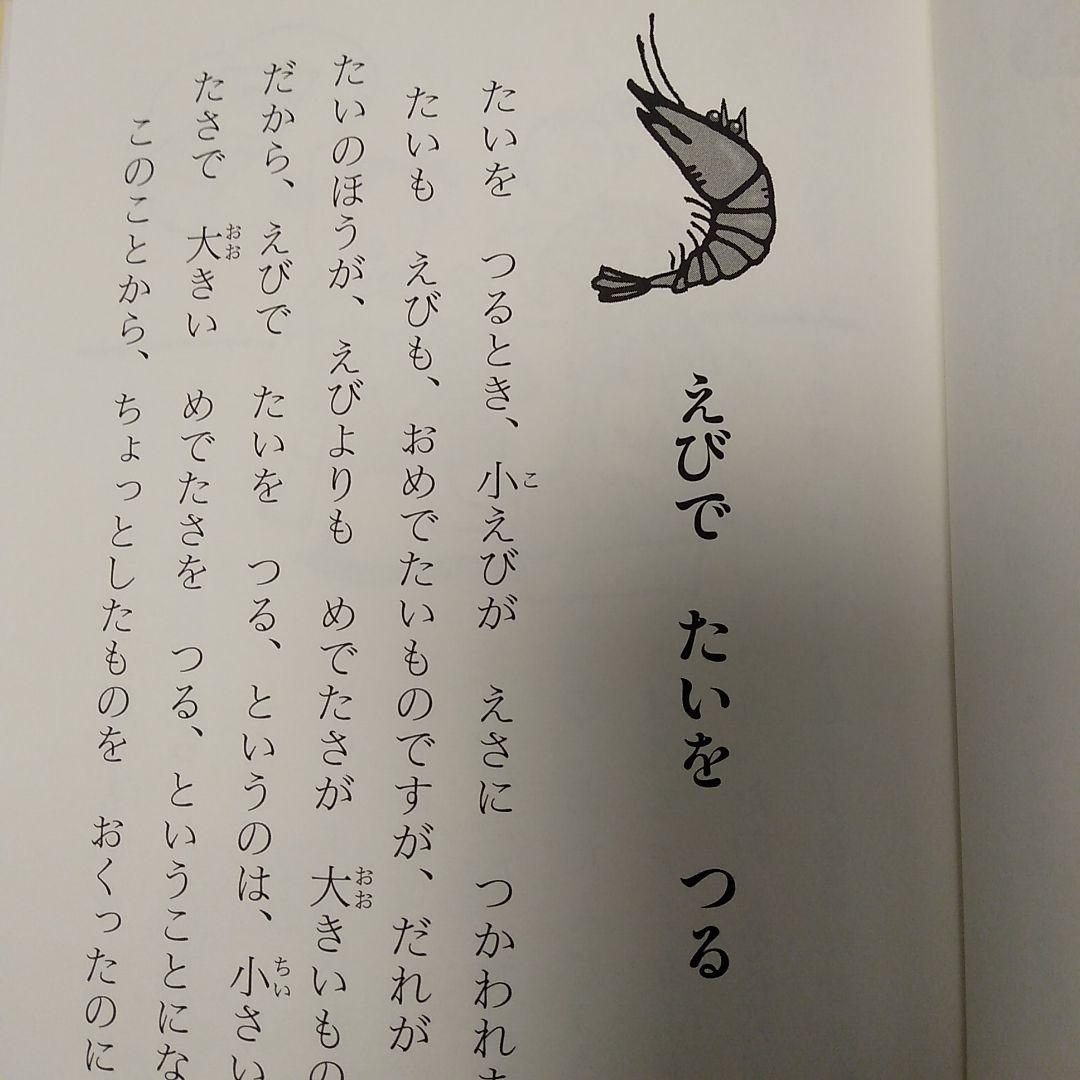 えびで たいを つる
たいを つるとき、小えびが えさに つかわれ
たいも えびも、おめでたいものですが、だれが
たいのほうが、えびよりも めでたさが 大きいもの
だから、えびで たいを つる、というのは、小さい
たさで 大きい めでたさを つる、ということにな
このことから、ちょっとしたものを おくったのに